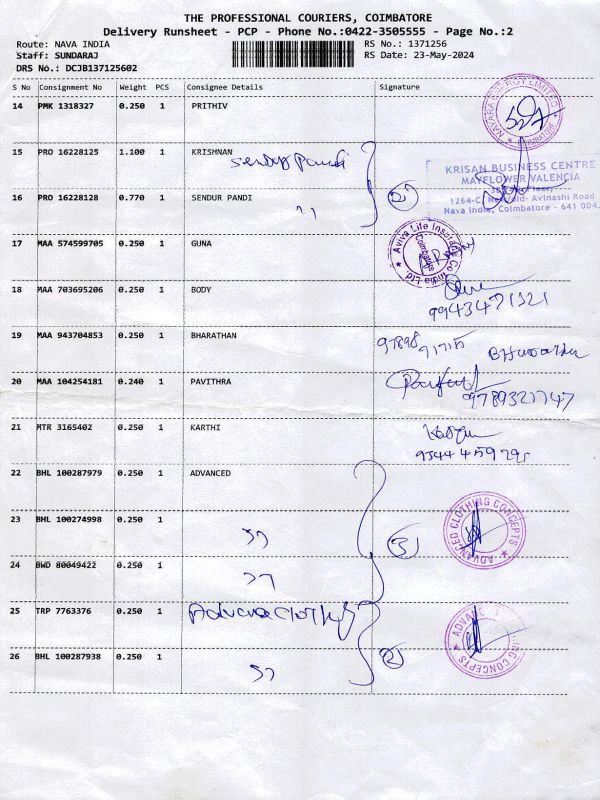 THE PROFESSIONAL COURIERS, COIMBATORE
Delivery Runsheet - PCP - Phone No.:0422-3505555 - Page No.:2
Route: NAVA INDIA RS No.: 1371256
Staff: SUNDARAJ RS Date: 23-May-2024
DRS No.: DCJB137125602
S No Consignment No Weight PCS Consignee Details Signature
14 PMK 1318327 0.250 1 PRITHIV
NAYARA ENERGY LIMITED COIMBATORE
15 PRO 16228125 1.100 1 KRISHNAN
Sendur Pandi
KRISAN BUSINESS CENTRE
MAYFLOWER VALENCIA
Floor,
1264-C, Avinashi Road
Nava India, Coimbatore - 641 004.
16 PRO 16228128 0.770 1 SENDUR PANDI
2
17 MAA 574599705 0.250 1 GUNA
Aviva Life Insurance Co India Ltd Coimbatore
18 MAA 703695206 0.250 1 BODY
9943471321
19 MAA 943704853 0.250 1 BHARATHAN
97898 Bharathan
20 MAA 104254181 0.240 1 PAVITHRA
9789321747
21 MTR 3165402 0.250 1 KARTHI
22 BHL 100287979 0.250 1 ADVANCED
23 BHL 100274998 0.250 1
3
ADVANCED CLOTHING CONCEPTS
24 BWD 80049422 0.250 1
25 TRP 7763376 0.250 1
Advance Clothing
ADVANCED CLOTHING CONCEPTS
26 BHL 100287938 0.250 1
2